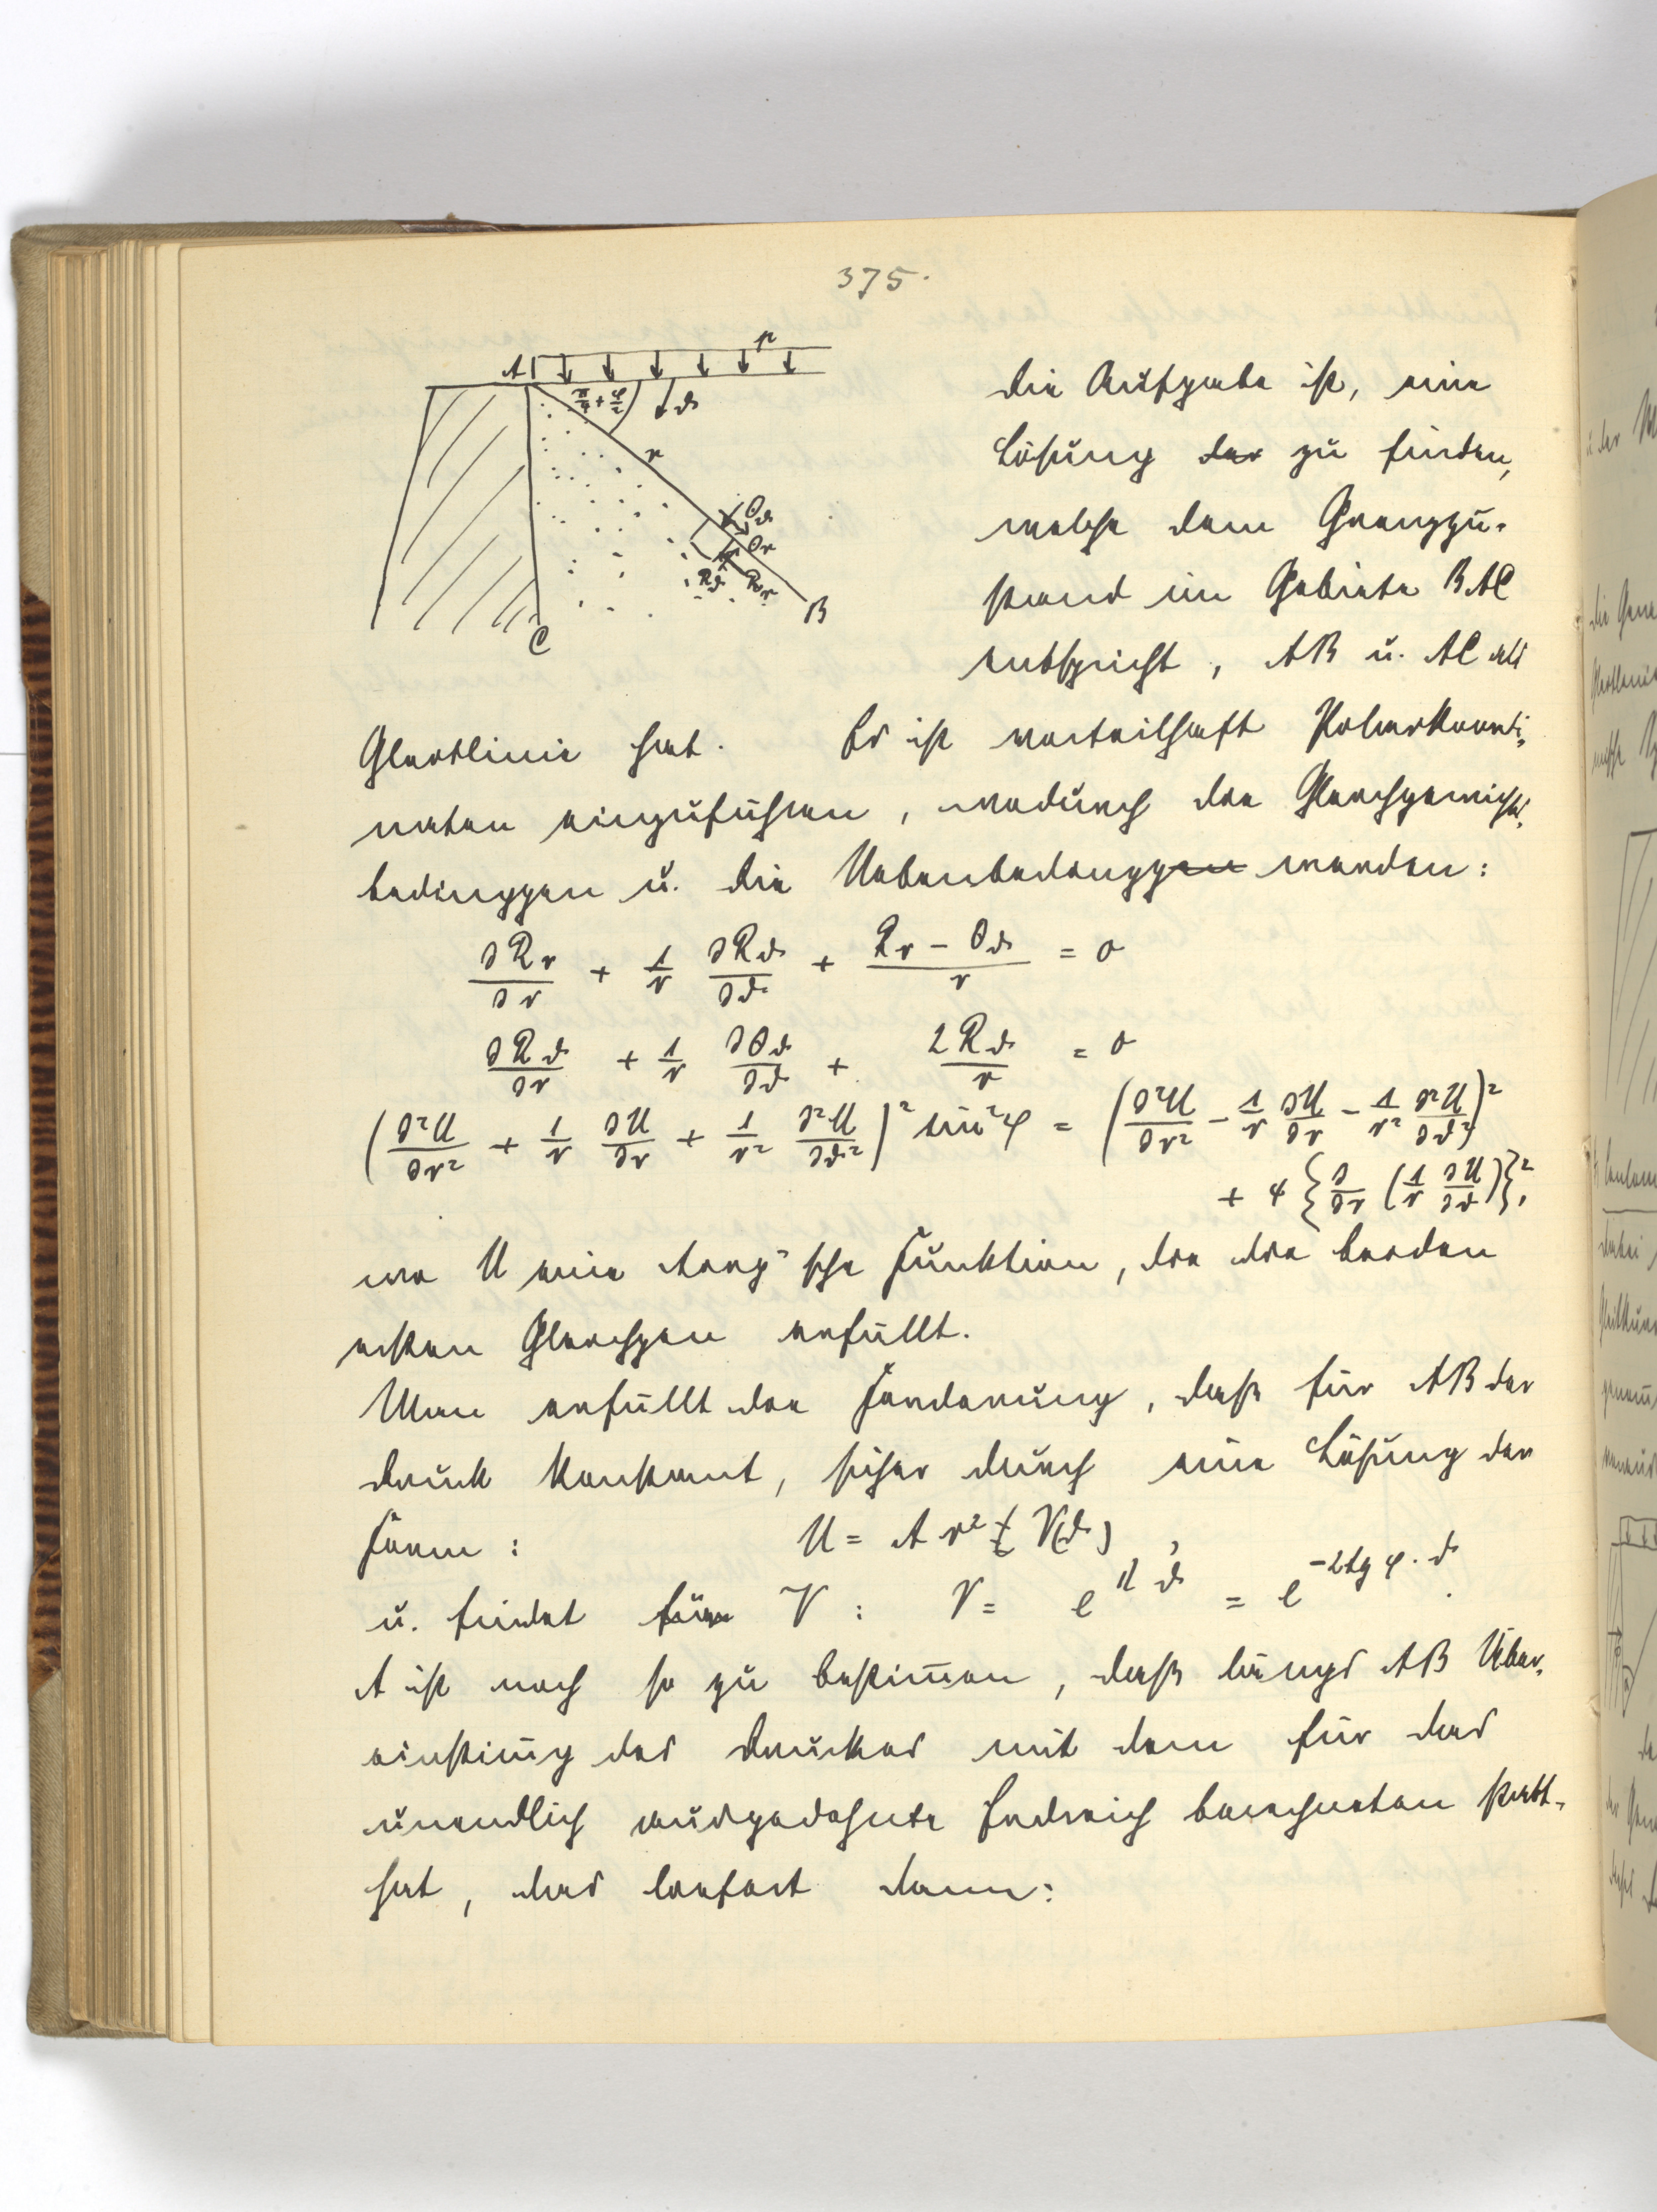 375.
A p
π/4 + φ/2 ϑ
r
Θϑ
Θr
Rϑ Rr
B
C
Die Aufgabe ist, eine
Lösung der zu finden,
welche dem Grenzzu-
stand im Gebiete BAC
entspricht, AB u. AC als
Gleitlinie hat. Es ist vorteilhaft Polarkoordi-
naten einzuführen, wodurch die Gleichgewichts-
bedinggen u. die Nebenbedinggen werden:
∂Rr/∂r + 1/r ∂Rϑ/∂ϑ + (Rr − Θϑ)/r = 0
∂Rϑ/∂r + 1/r ∂Θϑ/∂ϑ + 2Rϑ/r = 0
(∂²U/∂r² + 1/r ∂U/∂r + 1/r² ∂²U/∂ϑ²)² sin²φ = (∂²U/∂r² − 1/r ∂U/∂r − 1/r² ∂²U/∂ϑ²)²
+ 4 {∂/∂r (1/r ∂U/∂ϑ)}²,
wo U eine Airy'sche Funktion, die die beiden
ersten Gleichgen erfüllt.
Man erfüllt die Forderung, dass für AB der
Druck konstant, sicher durch eine Lösung der
Form: U = A r² V(ϑ),
u. findet für V: V = e^{λϑ} = e^{−2tg φ·ϑ}.
A ist noch so zu bestim̄en, dass längs AB Über-
einstim̄g des Druckes mit dem für das
unendlich ausgedehnte Erdreich berechneten statt-
hat, das liefert dann: